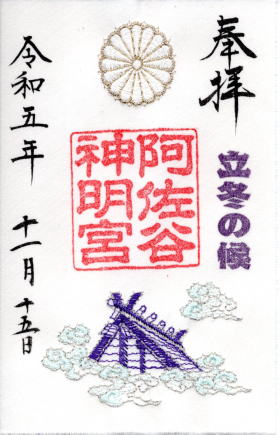 奉拝
立冬の候
阿佐谷
神明宮
令和五年 十一月 十五日